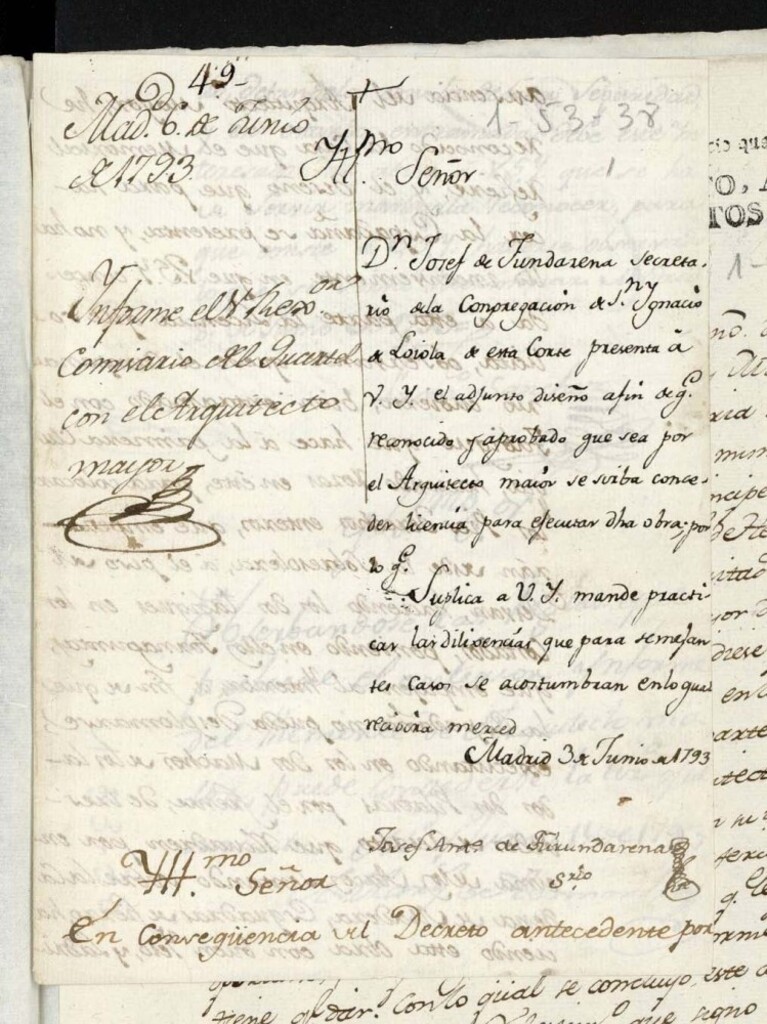 49
Mad. 6. de Junio
de 1793.
Informe el Sr. Rexor.
Comisario del Quartel
con el Arquitecto
mayor
1-53-38
Yllmo
Señor
Dn. Josef de Fundarena secreta-
rio de la Congregación de Sn. Ygnacio
de Loiola de esta Corte presenta á
V. Y. el adjunto diseño afin de q.e
reconocido y aprobado que sea por
el Arquitecto maior se sirba conce-
der licencia para ejecutar dha obra; por
lo q.e
Suplica a V. Y. mande practi
car las diligencias que para semejan
tes casos se acostumbran en lo qual
recivira merced
Madrid 3 de Junio de 1793
Josef Anto. de Furundarena
Srio
Yllmo.
Señor
En Conseqüencia del Decreto antecedente por